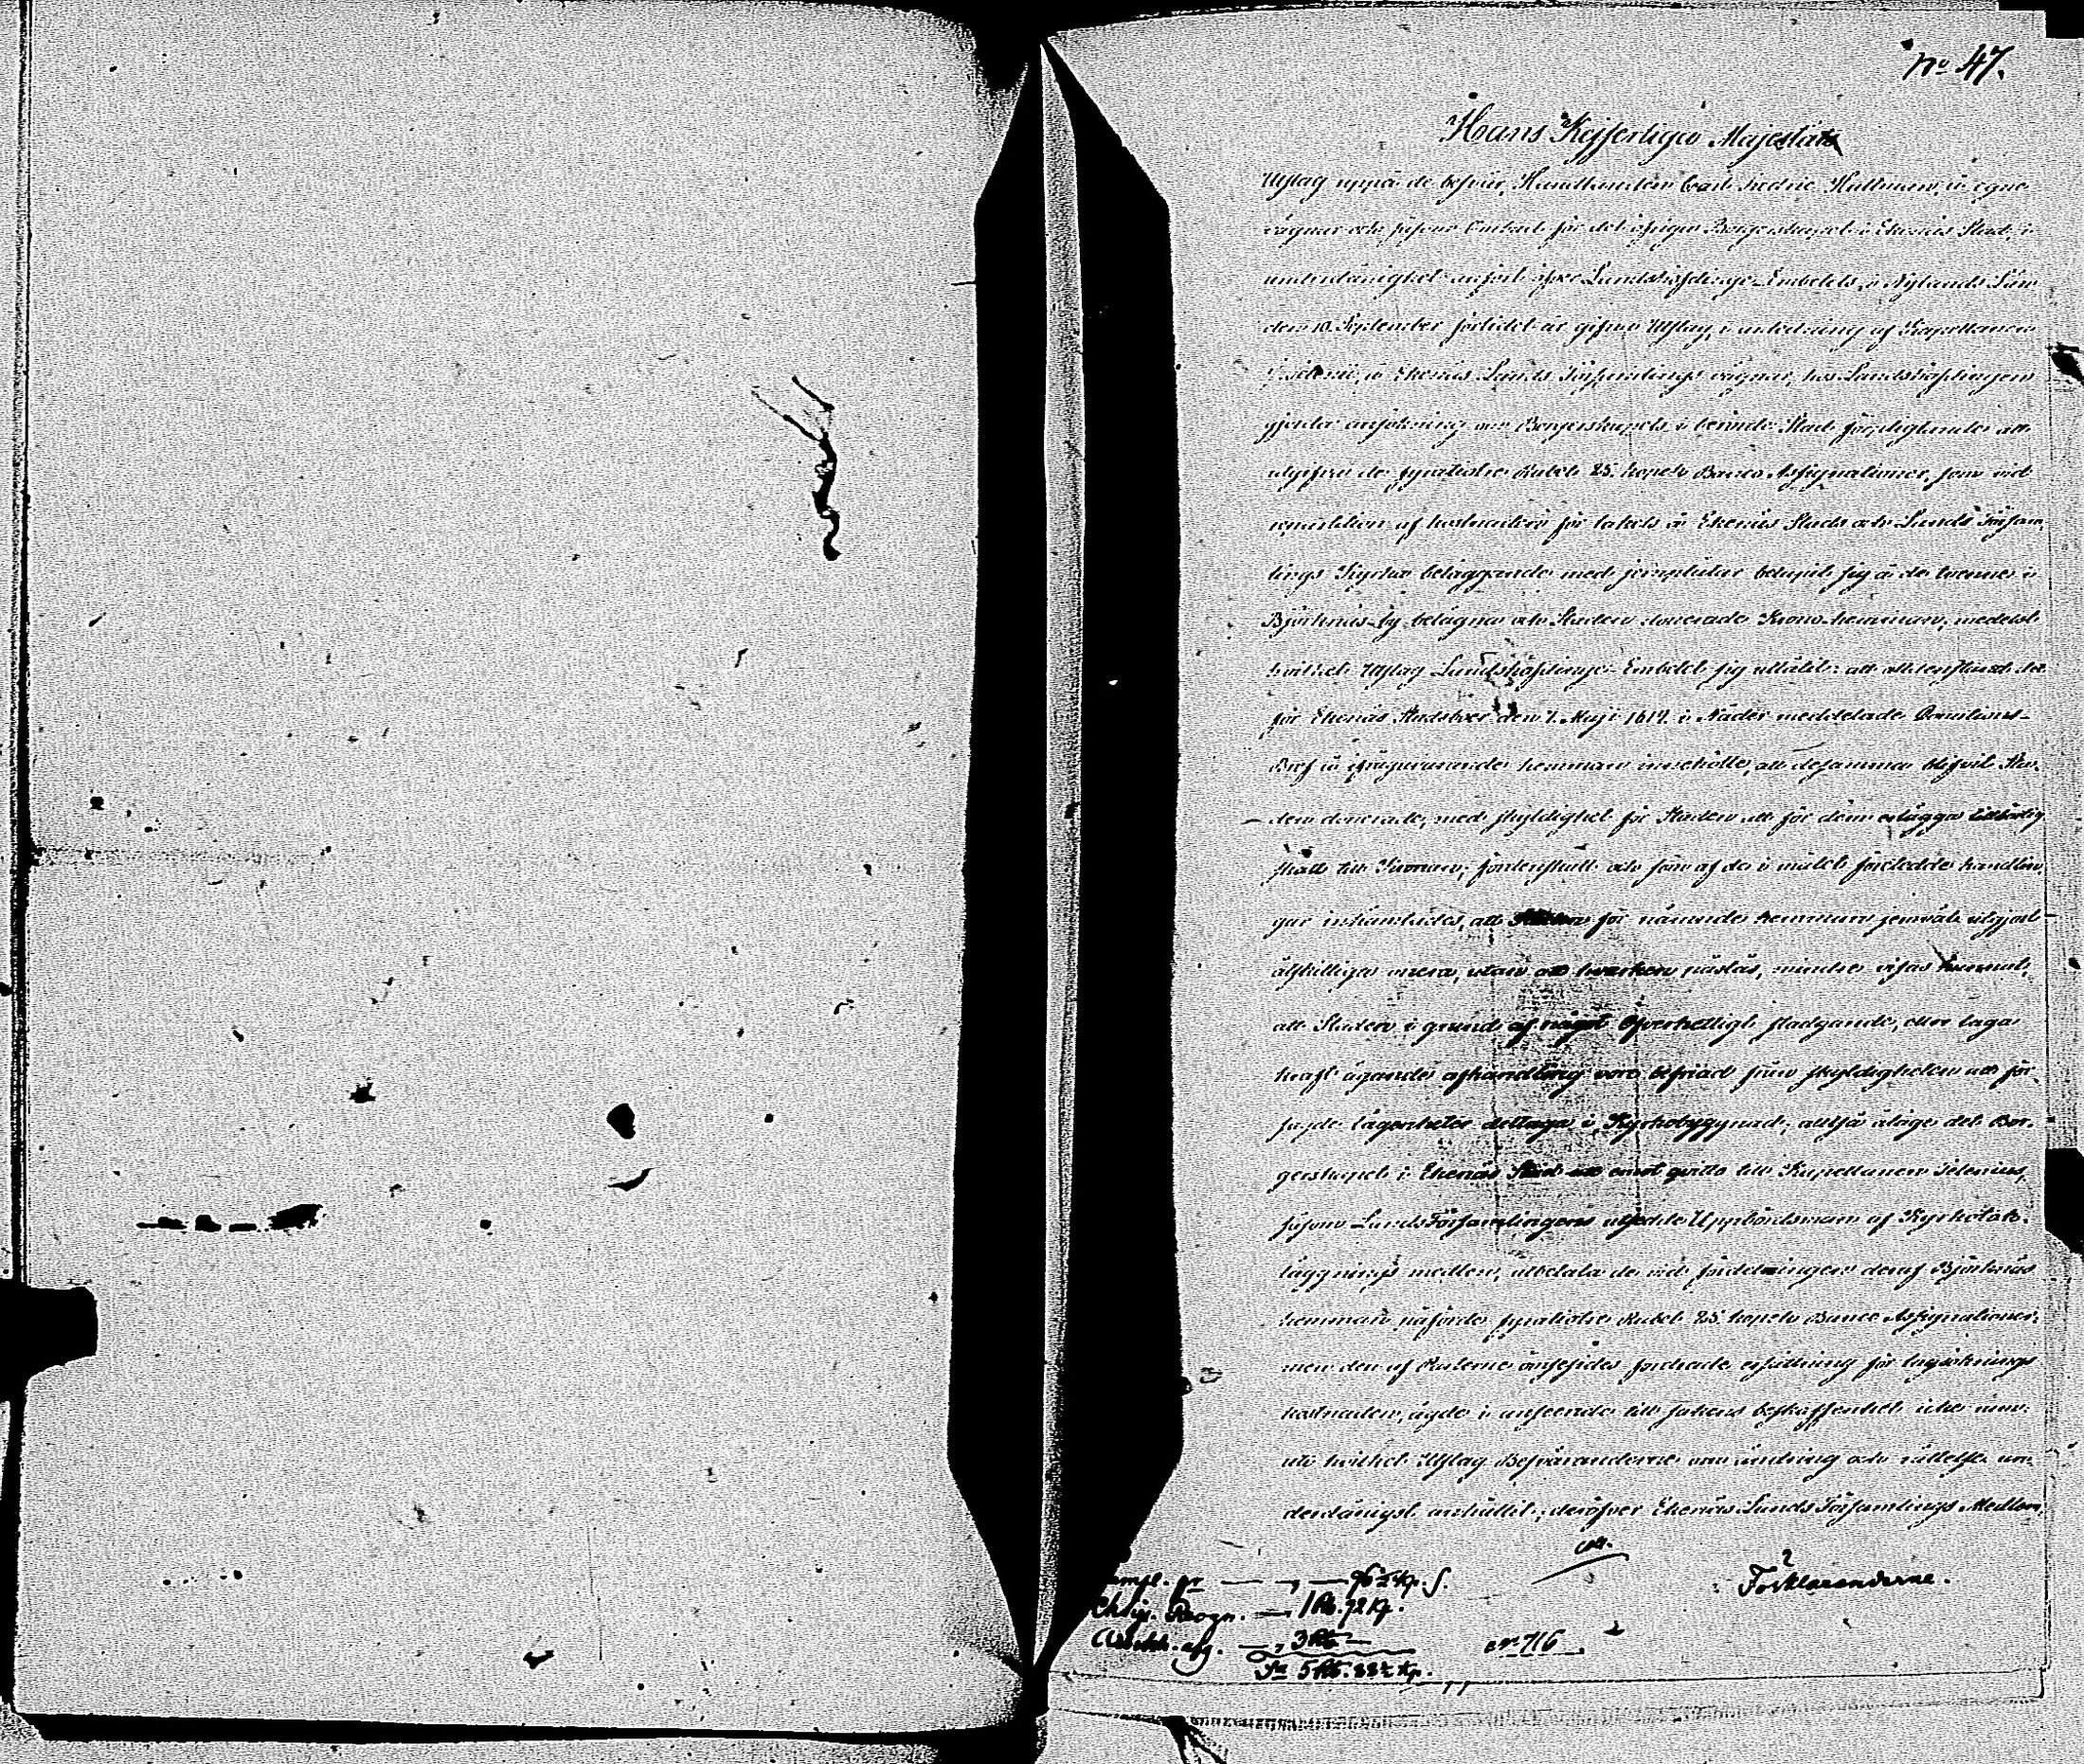 No 47.
Hans Kejserliga Majestäts
Utslag uppå de besvär, Handlanden Carl Fredric Hultman, å egne
vägnar och såsom Ombud för det öfriga Borgerskapet i Ekenäs Stad, i
underdånighet anfört öfver Landshöfdinge-Embetets i Nylands Län
den 10 September förtidet år gifna Utslag, i anledning af Kapellanen
å Ekenäs Lands Församlings vägnar, hos Landshöfdingen
gjorda ansökning om Borgerskapets i berörde Stad förpligtande att
utgifva de fyratio Rubel 25 kopek Banco Assignationer, som vid
repartition af kostnaden för takets å Ekenäs Stads och Lands Försam-
lings Kyrka beläggande med jernplåtar belupit sig å de tvenne i
Björknäs by belägna och Staden donerade Krono hemman, medelst
hvilket Utslag Landshöfdinge-Embetet sig utlåtit: att alldenstund det
för Ekenäs Stadsboer den 7. Maji 1617 i Nåder meddelade Donations-
Bref å ifrågavarande hemman innehölle, att desamma blifvit Sta-
den donerade, med skyldighet för Staden att för dem erlägga tillbörlig
skatt till Kronan; fördenskull och som af de i målet företedde handlin-
gar inhämtades, att Staden för nämnde hemman jemväl utgjort
åtskilliga onera, utan att hvarken påstås, mindre visas kunnat,
att Staden i grund af något Öfverhetligt stadgande, eller laga
kraft ägande afhandling vore befriad från skyldigheten att för
sagde lägenheter deltaga i Kyrkobyggnad; alltså ålåge det Bor-
gerskapet i Ekenäs Stad att emot qvitto till Kapellanen Selenius,
såsom Lands Församlingens utsedde Uppbördsman af Kyrkotak-
läggnings medlen, utbetala de vid fördelningen deraf Björknäs
hemman påförde fyratio Rubel 25 kopek Banco Assignationer;
men den af Parterne ömsesides fordrade ersättning för lagsöknings
kostnaden, ägde i anseende till sakens beskaffenhet icke rum;
uti hvilket Utslag Besväranderne om ändring och rättelse un-
derdånigst anhållit; deröfver Ekenäs Lands Församlings Medlem-
coll.
Förklaranderne.
Chart. Recogn. — 1 Rb. 72 Kp.
— 3 Rb —
Sa 5 Rb.
No 716